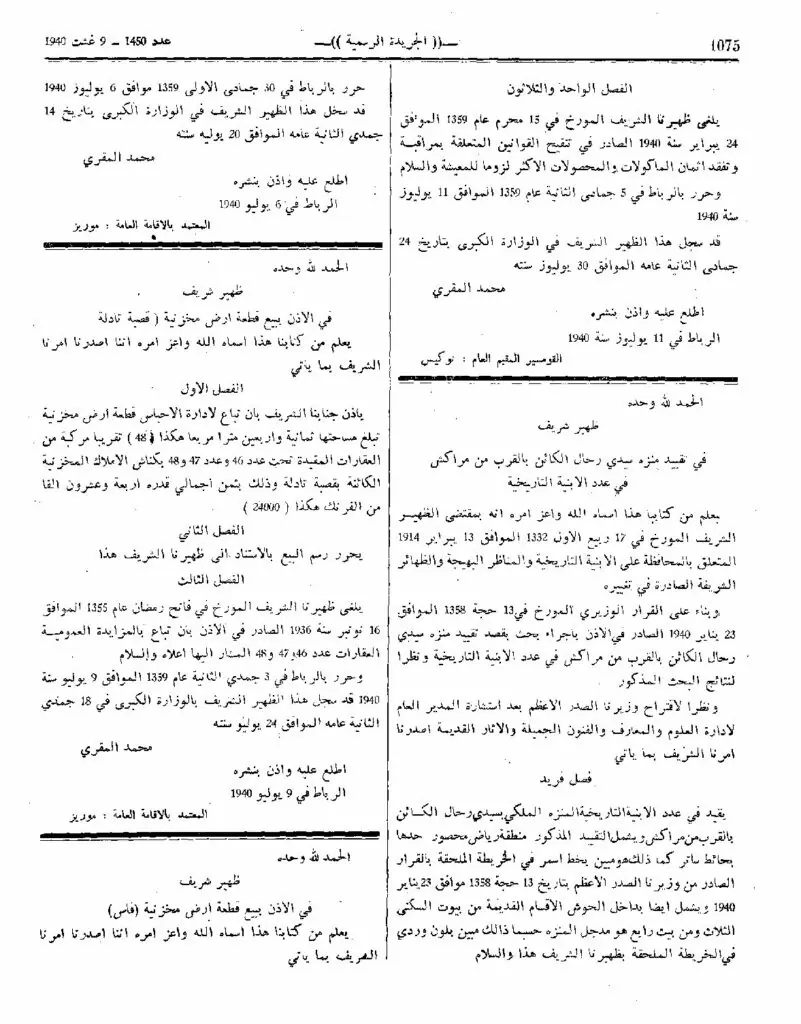 1075
—(( الجريدة الرسمية ))—
عدد 1450 – 9 غشت 1940
الفصل الواحد والثلاثون
يلغى ظهيرنا الشريف المورخ في 15 محرم عام 1359 الموافق
24 يبراير سنة 1940 الصادر في تنقيح القوانين المتعلقة بمراقبة
وتفقد اثمان الماكولات والمحصولات الاكثر لزوما للمعيشة والسلام
وحرر بالرباط في 5 جمادى الثانية عام 1359 الموافق 11 يوليوز
سنة 1940
قد سجل هذا الظهير الشريف في الوزارة الكبرى بتاريخ 24
جمادى الثانية عامه الموافق 30 يوليوز سنته
محمد المقري
اطلع عليه واذن بنشره
الرباط في 11 يوليوز سنة 1940
القومسير المقيم العام : نوكيس
الحمد لله وحده
ظهير شريف
في تقييد منزه سيدي رحال الكائن بالقرب من مراكش
في عدد الابنية التاريخية
يعلم من كتابنا هذا اسماه الله واعز امره انه بمقتضى الظهير
الشريف المورخ في 17 ربيع الاول 1332 الموافق 13 يبراير 1914
المتعلق بالمحافظة على الابنية التاريخية والمناظر البهيجة والظهائر
الشريفة الصادرة في تغييره
وبناء على القرار الوزيري المورخ في 13 حجة 1358 الموافق
23 يناير 1940 الصادر في الاذن باجراء بحث بقصد تقييد منزه سيدي
رحال الكائن بالقرب من مراكش في عدد الابنية التاريخية ونظرا
لنتائج البحث المذكور
ونظرا لاقتراح وزيرنا الصدر الاعظم بعد استشارة المدير العام
لادارة العلوم والمعارف والفنون الجميلة والاثار القديمة اصدرنا
امرنا الشريف بما ياتي
فصل فريد
يقيد في عدد الابنية التاريخية المنزه الملكي بسيدي رحال الكائن
بالقرب من مراكش ويشمل التقييد المذكور منطقة رياض محصور حدها
بحائط ساتر كما ذلك مبين بخط اسمر في الخريطة الملحقة بالقرار
الصادر من وزيرنا الصدر الاعظم بتاريخ 13 حجة 1358 موافق 23 يناير
1940 ويشمل ايضا بداخل الحوش الاقسام القديمة من بيوت السكنى
الثلاث ومن بيت رابع هو مدخل المنزه حسبما ذالك مبين بلون وردي
في الخريطة الملحقة بظهيرنا الشريف هذا والسلام
حرر بالرباط في 30 جمادى الاولى 1359 موافق 6 يوليوز 1940
قد سجل هذا الظهير الشريف في الوزارة الكبرى بتاريخ 14
جمدي الثانية عامه الموافق 20 يوليه سنته
محمد المقري
اطلع عليه واذن بنشره
الرباط في 6 يوليو 1940
المعتمد بالاقامة العامة : موريز
الحمد لله وحده
ظهير شريف
في الاذن ببيع قطعة ارض مخزنية ( قصبة تادلة
يعلم من كتابنا هذا اسماه الله واعز امره اننا اصدرنا امرنا
الشريف بما ياتي
الفصل الاول
ياذن جنابنا الشريف بان تباع لادارة الاحباس قطعة ارض مخزنية
تبلغ مساحتها ثمانية واربعين مترا مربعا هكذا (48) تقريبا مركبة من
العقارات المقيدة تحت عدد 46 وعدد 47 و48 بكناش الاملاك المخزنية
الكائنة بقصبة تادلة وذلك بثمن اجمالي قدره اربعة وعشرون الفا
من الفرنك هكذا ( 24000 )
الفصل الثاني
يحرر رسم البيع بالاستناد الى ظهيرنا الشريف هذا
الفصل الثالث
يلغى ظهيرنا الشريف المورخ في فاتح رمضان عام 1355 الموافق
16 نونبر سنة 1936 الصادر في الاذن بان تباع بالمزايدة العمومية
العقارات عدد 46 و47 و48 المشار اليها اعلاه والسلام
وحرر بالرباط في 3 جمدي الثانية عام 1359 الموافق 9 يوليو سنة
1940 قد سجل هذا الظهير الشريف بالوزارة الكبرى في 18 جمدي
الثانية عامه الموافق 24 يوليو سنته
محمد المقري
اطلع عليه واذن بنشره
الرباط في 9 يوليو 1940
المعتمد بالاقامة العامة : موريز
الحمد لله وحده
ظهير شريف
في الاذن ببيع قطعة ارض مخزنية (فاس)
يعلم من كتابنا هذا اسماه الله واعز امره اننا اصدرنا امرنا
الشريف بما ياتي